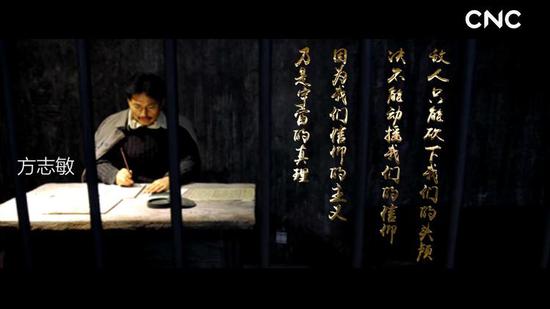 CNC
敌人只能砍下我们的头颅
决不能动摇我们的信仰
因为我们信仰的主义
乃是宇宙的真理
方志敏